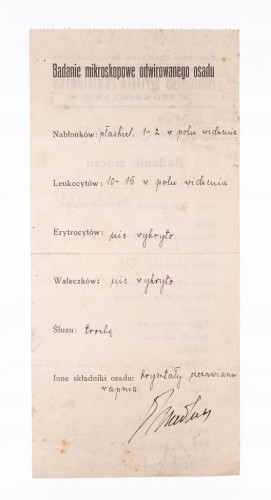 Badanie mikroskopowe odwirowanego osadu
Nabłonków: płaskich 1-2 w polu widzenia
Leukocytów: 10-15 w polu widzenia
Erytrocytów: nie wykryto
Wałeczków: nie wykryto
Śluzu: trochę
Inne składniki osadu: kryształy szczawianu
wapnia.